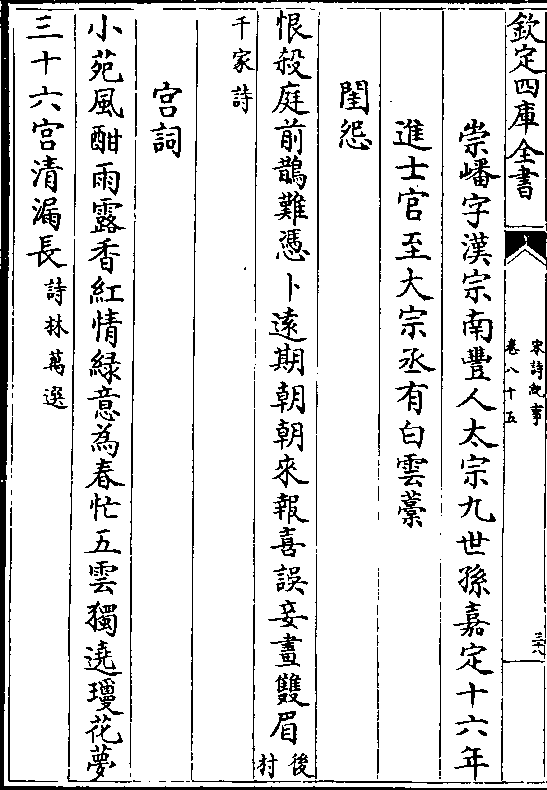 欽定四庫全書
宋詩紀事
卷八十五
三十八
崇嶓字漢宗南豐人太宗九世孫嘉定十六年
進士官至大宗丞有白雲藁
閨怨
恨殺庭前鵲難憑卜遠期朝朝來報喜誤妾畫雙眉後村
千家詩
宫詞
小苑風酣雨露香紅情緑意為春忙五雲獨遶瓊花夢
三十六宫清漏長詩林萬選